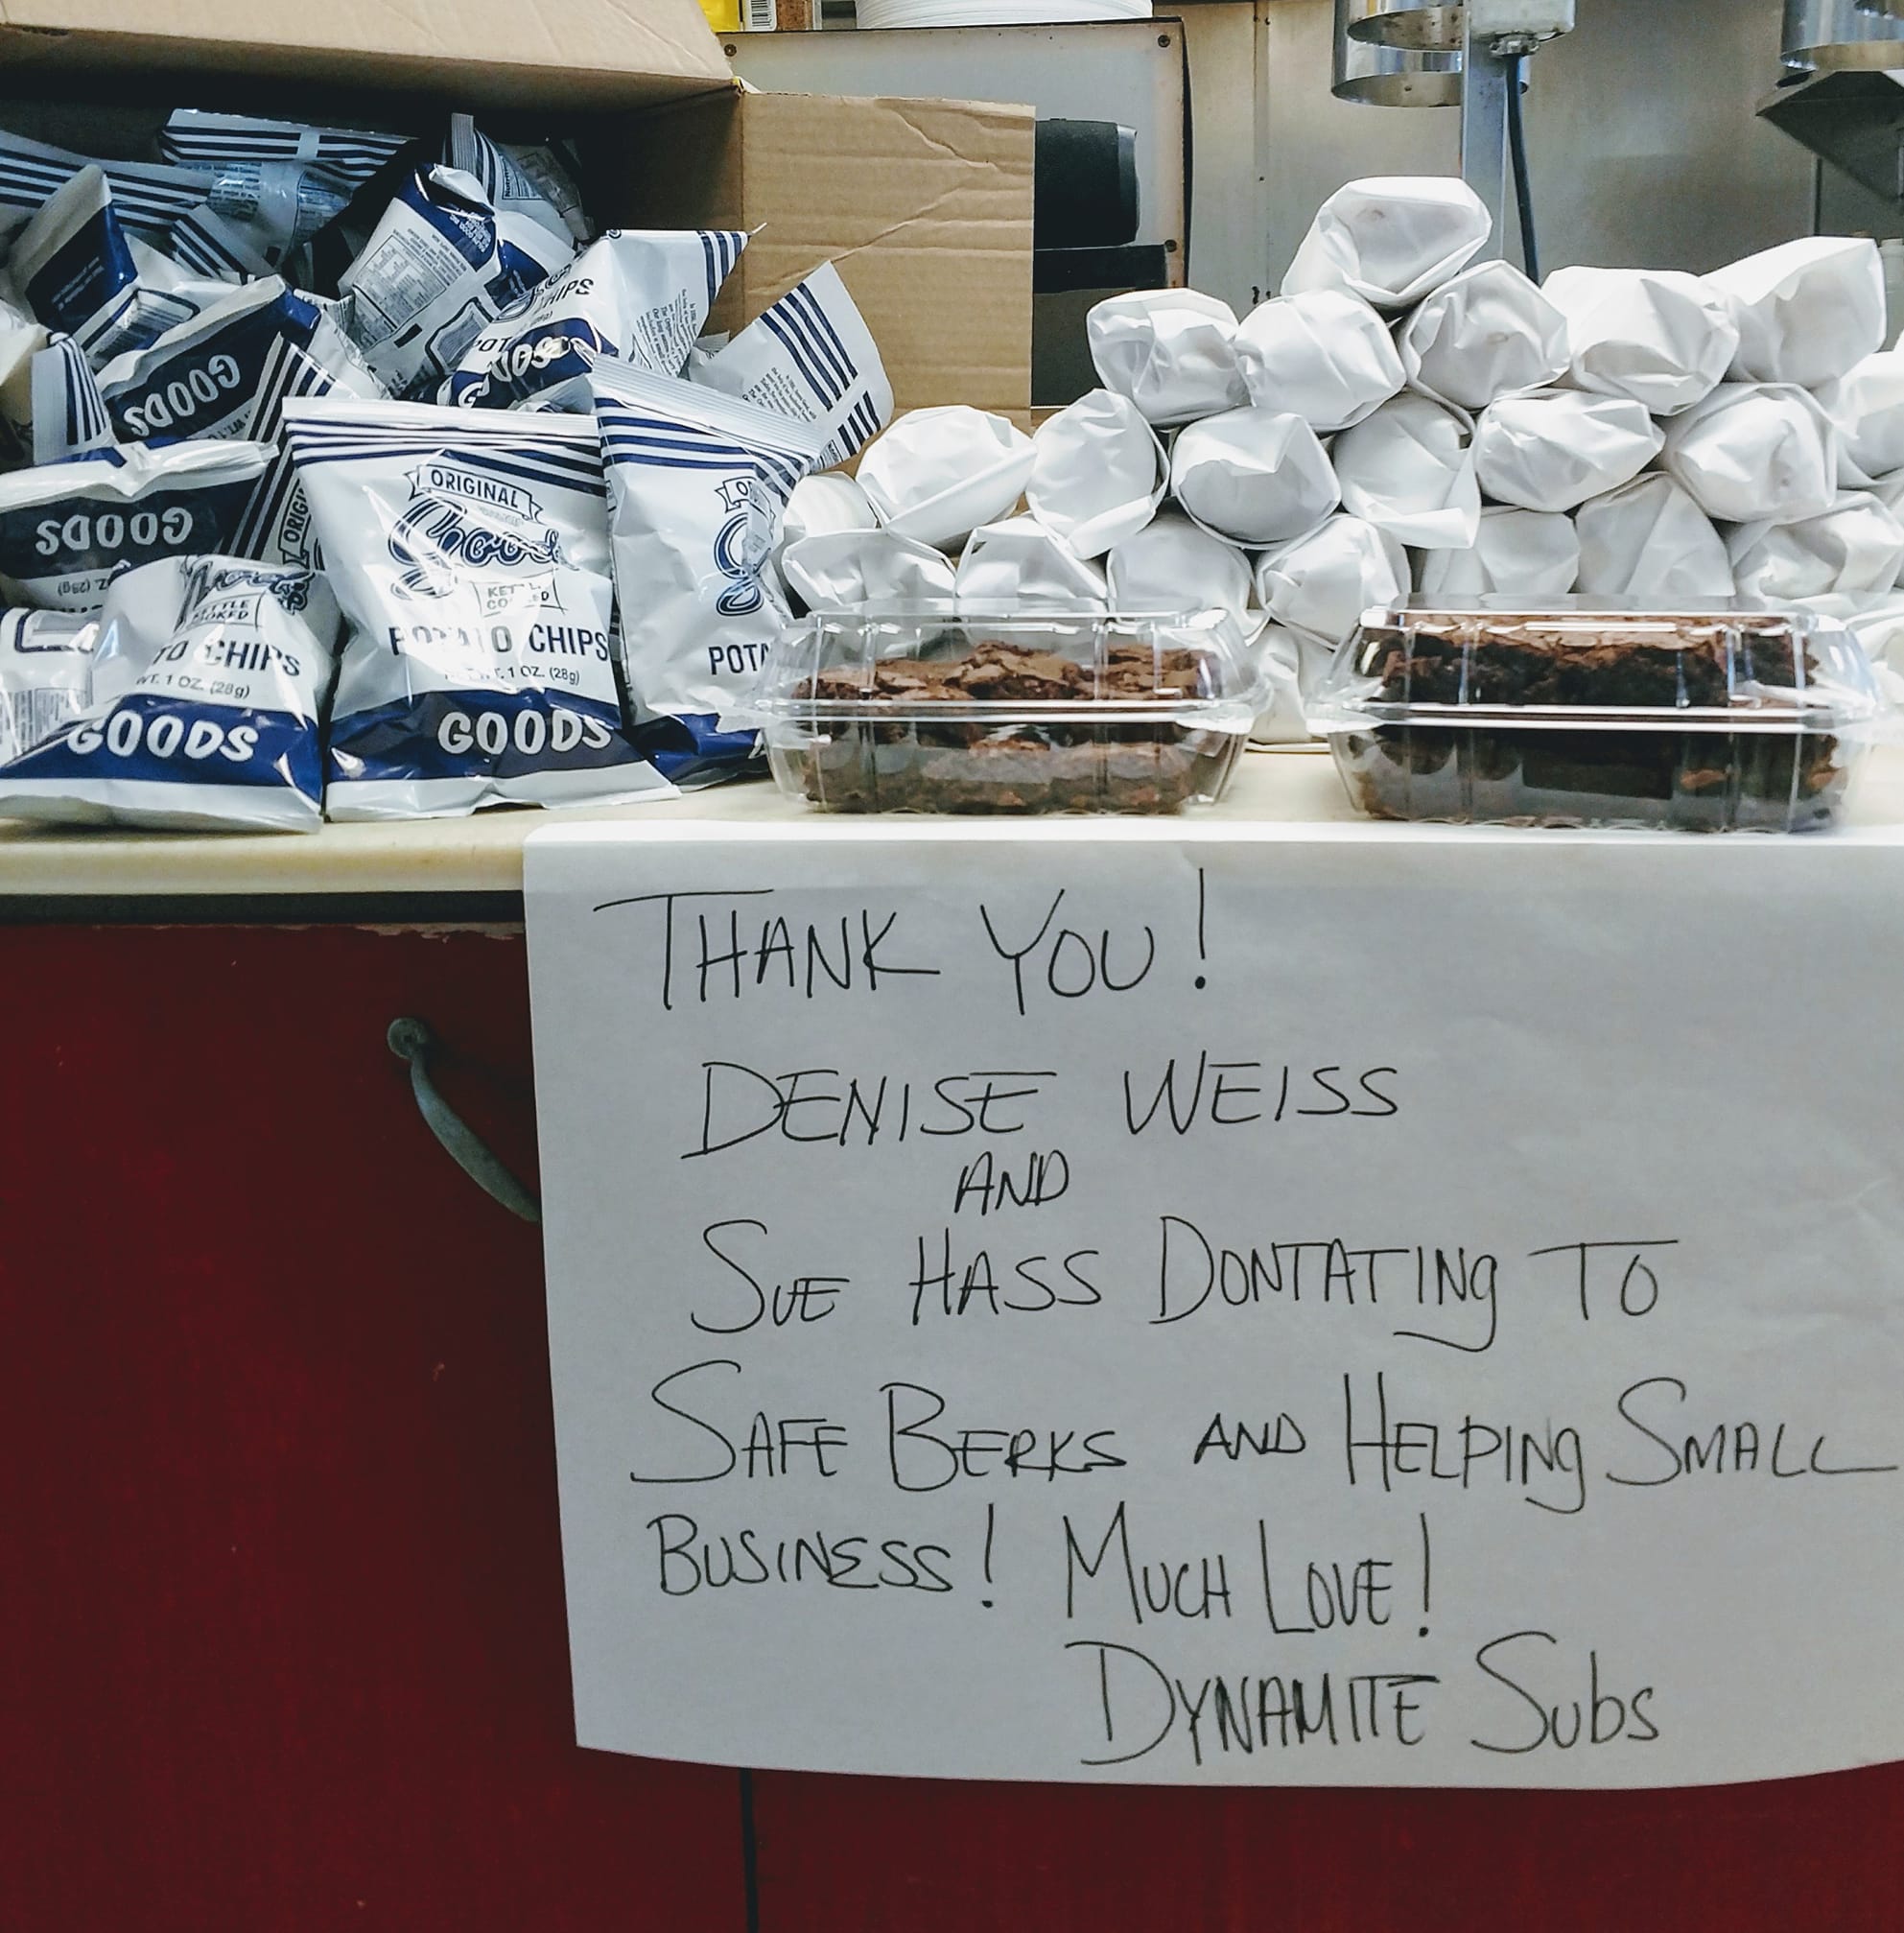 GOODS
CHIPS
POT
GOODS
ORIGINAL
Good's
KETTLE
COOKED
POTATO CHIPS
NET WT. 1 OZ. (28g)
GOODS
POTA
GOODS
KETTLE
COOKED
TO CHIPS
WT. 1 OZ. (28g)
GOODS
THANK YOU!
DENISE WEISS
AND
SUE HASS DONTATING TO
SAFE BERKS AND HELPING SMALL
BUSINESS! MUCH LOVE!
DYNAMITE SUBS